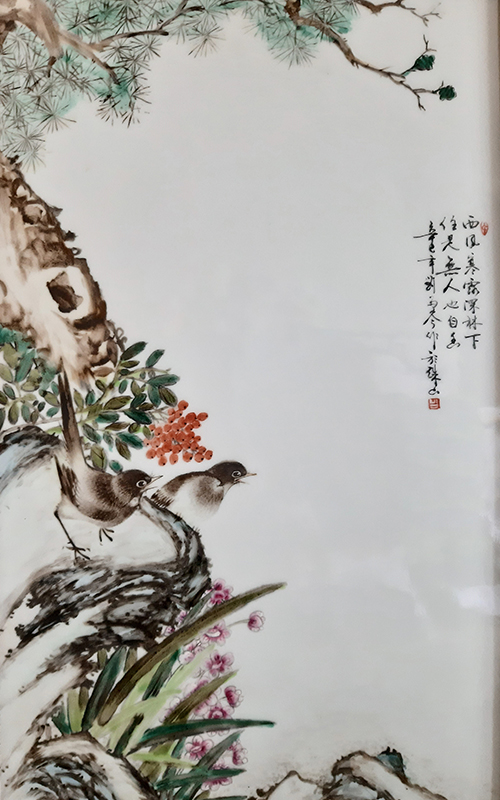 西风寒露深林下
任是无人也自香
辛巳年刘雨岑作於珠山